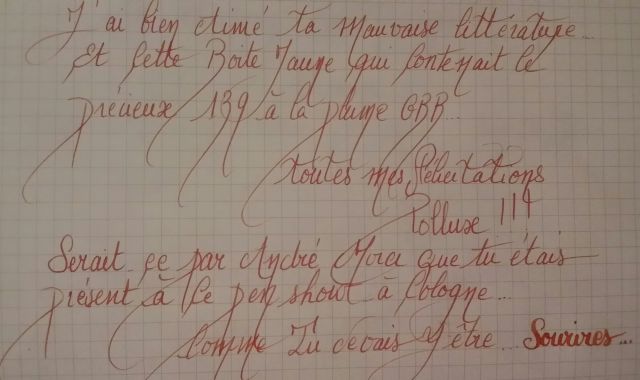 J'ai bien aimé ta mauvaise littérature...
Et cette Boîte Jaune qui contenait le
précieux 139 à la plume OBB...
toutes mes félicitations
Pollux !!!
Serait-ce par André Mora que tu étais
présent à ce pen show à Cologne...
Comme Tu devais y être... Sourires...